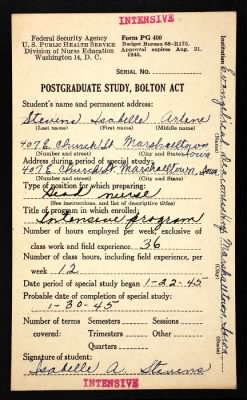 INTENSIVE
Federal Security Agency
U. S. PUBLIC HEALTH SERVICE
Division of Nurse Education
Washington 14, D. C.
Form PG 400
Budget Bureau 68-R175,
Approval expires Aug. 31,
1945.
SERIAL NO.
POSTGRADUATE STUDY, BOLTON ACT
Student's name and permanent address:
Stevens Isabelle Arlene
(Last name) (First name) (Middle name)
407 E. Church St. Marshalltown Iowa
(Number and street) (City and State)
Address during period of special study:
407 E. Church St. Marshalltown, Iowa
(Number and street) (City and State)
Type of position for which preparing:
Head nurse
(See instructions, and list of descriptive titles)
Title of program in which enrolled:
Intensive program
Number of hours employed per week, exclusive of
class work and field experience 36
Number of class hours, including field experience, per
week 12
Date period of special study began 1-22-45
Probable date of completion of special study:
1-30-45
Number of terms Semesters Sessions
covered: Trimesters Other
Quarters
Signature of student:
Isabelle A. Stevens
INTENSIVE
Institution Evangelical Deaconess Hosp. Marshalltown, Iowa
(Name) (City) (State)